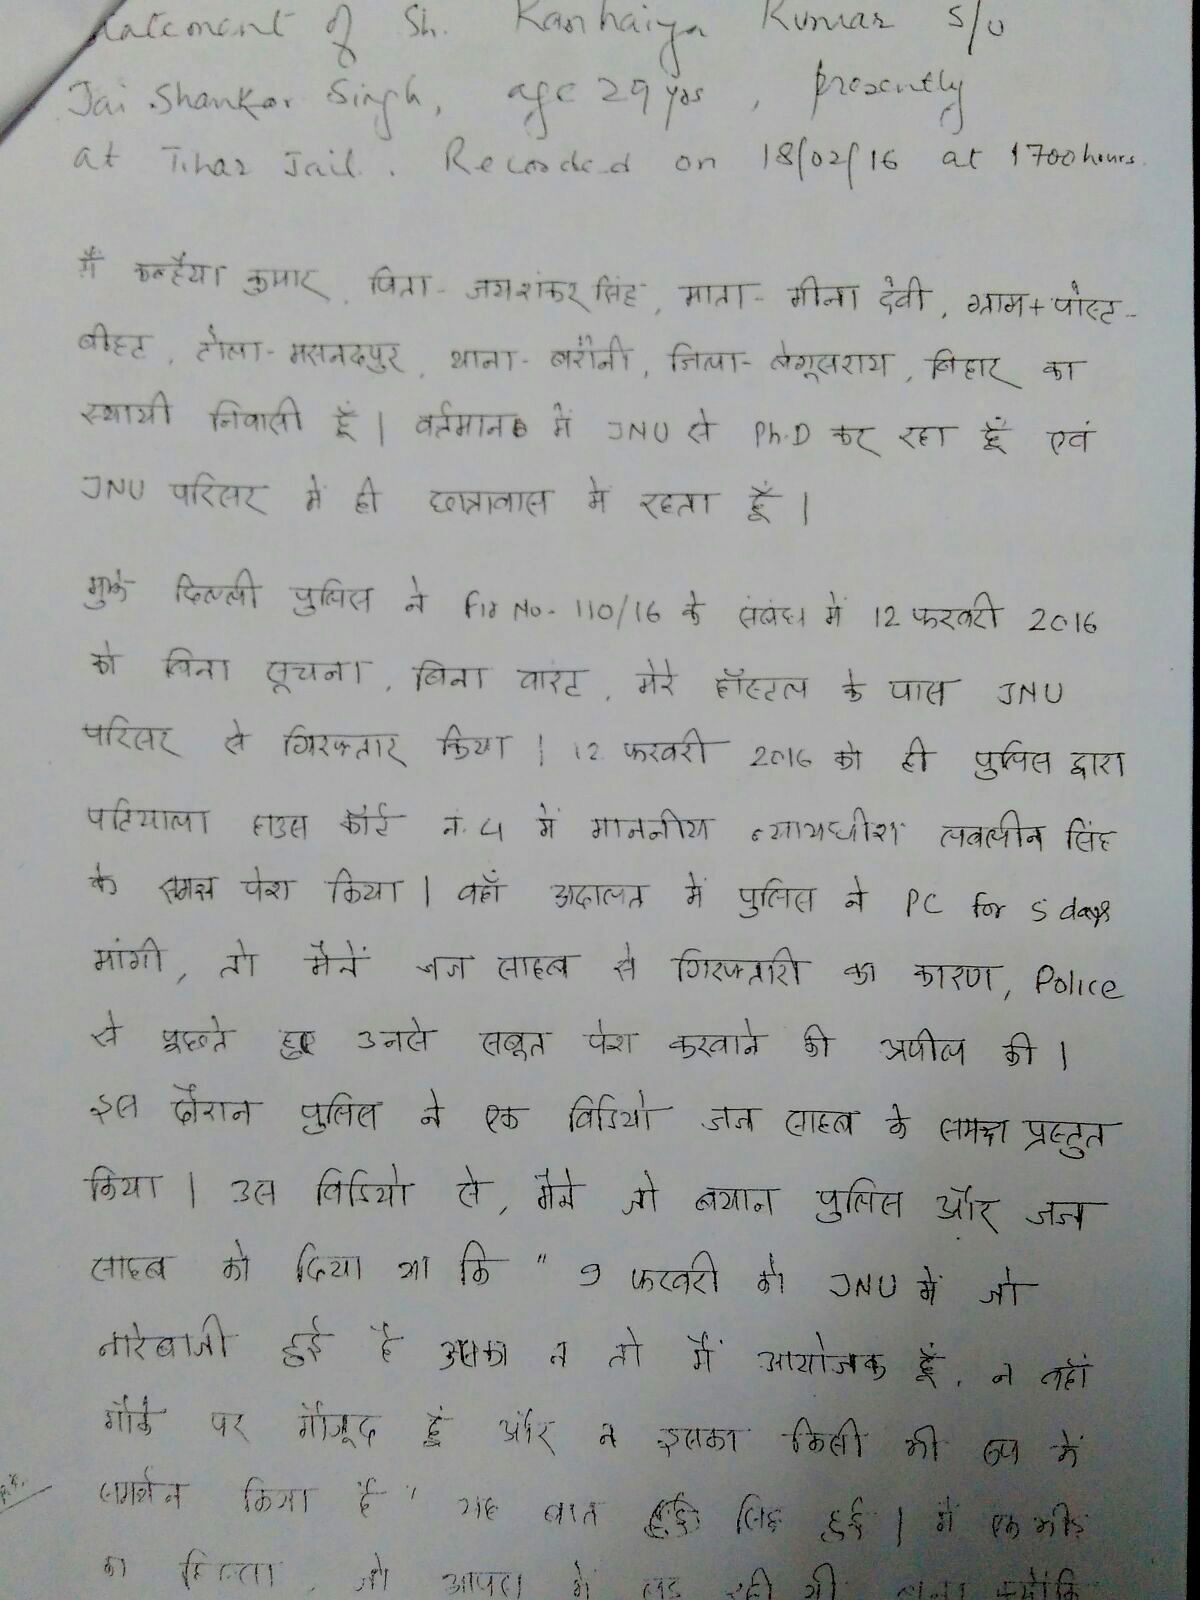 Statement of Sh. Kanhaiya Kumar S/o
Jai Shankar Singh, age 29 yrs, presently
at Tihar Jail. Recorded on 18/02/16 at 1700 hours.
मैं कन्हैया कुमार, पिता- जयशंकर सिंह, माता- मीना देवी, ग्राम + पोस्ट-
बीहट, टोला- मसनदपुर, थाना- बरौनी, जिला- बेगूसराय, बिहार का
स्थायी निवासी हूँ। वर्तमान में JNU से Ph.D कर रहा हूँ एवं
JNU परिसर में ही छात्रावास में रहता हूँ।
मुझे दिल्ली पुलिस ने Fir No- 110/16 के संबंध में 12 फरवरी 2016
को बिना सूचना, बिना वारंट, मेरे हॉस्टल के पास JNU
परिसर से गिरफ्तार किया। 12 फरवरी 2016 को ही पुलिस द्वारा
पटियाला हाउस कोर्ट नं. 4 में माननीय न्यायधीश लवलीन सिंह
के समक्ष पेश किया। वहाँ अदालत में पुलिस ने PC for 5 days
मांगी, तो मैनें जज साहब से गिरफ्तारी का कारण, Police
से पूछते हुए उनसे सबूत पेश करवाने की अपील की।
इस दौरान पुलिस ने एक विडियो जज साहब के समक्ष प्रस्तुत
किया। उस विडियो से, मैने जो बयान पुलिस और जज
साहब को दिया था कि " 9 फरवरी को JNU में जो
नारेबाजी हुई है उसका न तो मैं आयोजक हूँ, न वहाँ
मौके पर मौजूद हूँ और न इसका किसी भी रूप में
समर्थन किया है" यह बात सिद्ध हुई। मैं एक भीड़
का हिस्सा, जो आपस में लड़ रही थी, बना क्योंकि